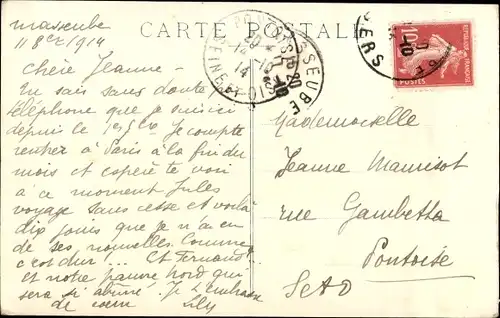 CARTE POSTALE
Masseube
11 8bre 1914
Chère Jeanne
Tu sais sans doute
téléphone que je suis ici
depuis le Je compte
rentrer à Paris à la fin du
mois et espère te voir
à ce moment Jules
voyage sans cesse et voilà
dix jours que je n'ai eu
de ses nouvelles. Comme
c'est dur!... Et Fernand...
et notre pauvre Nord qui
sera si abîmé. Je t'embrasse
de cœur Lily
MASSEUBE
GERS
10
POSTES
Mademoiselle
Jeanne
rue Gambetta
Pontoise
S et O